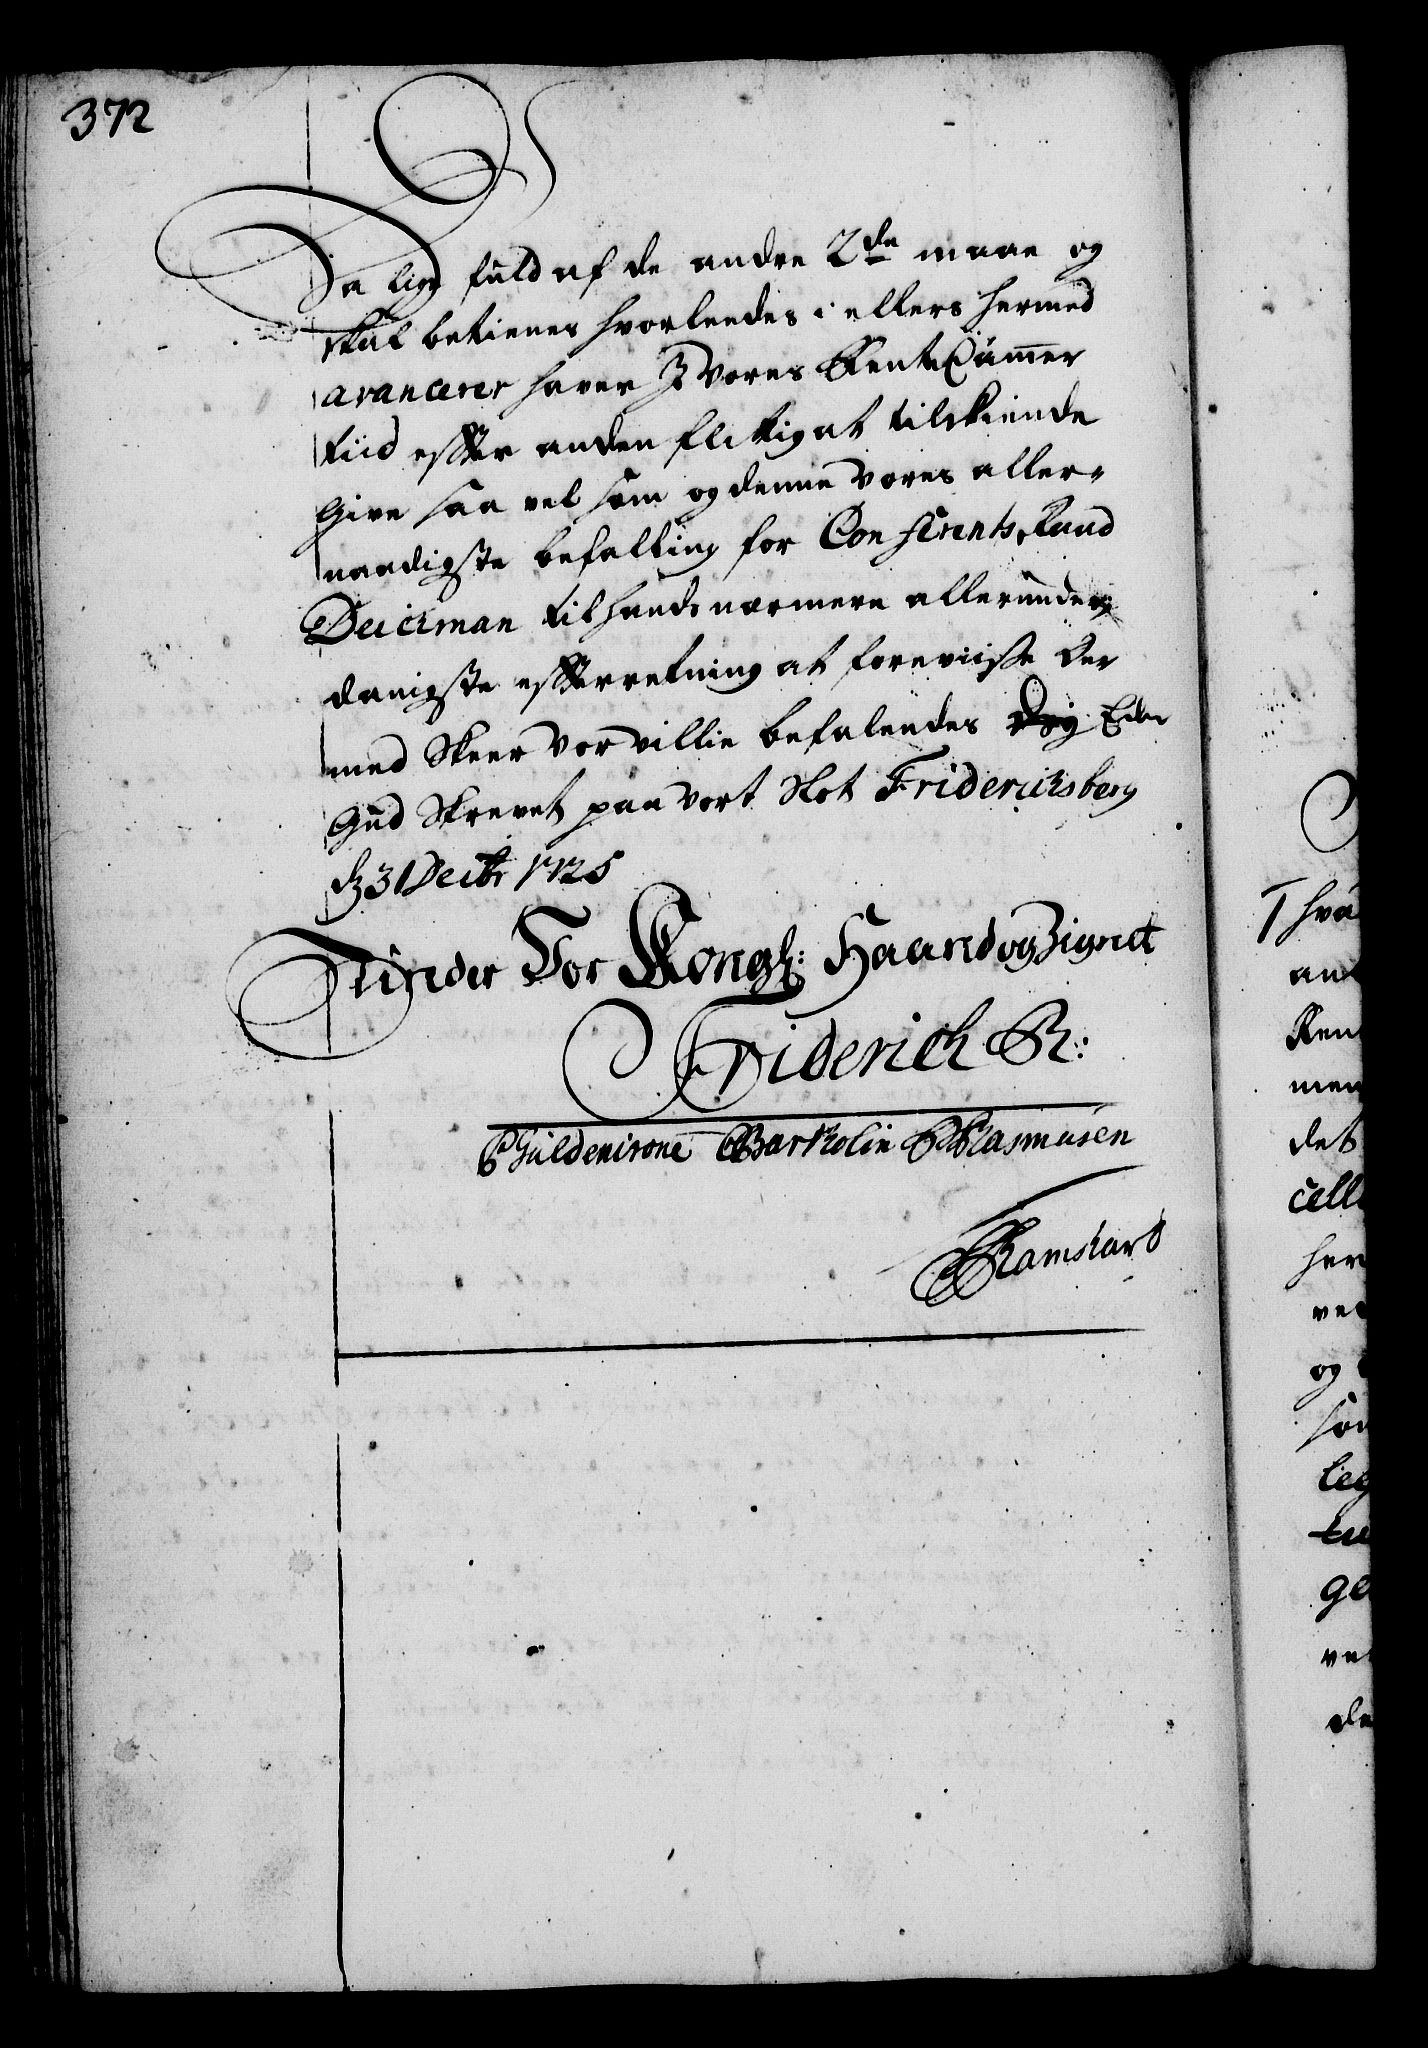 372
Da lige fuld af de andre 2de maae og
skal betienes hvorleedes i ellers hermed
avancerer haver I Vores Rente Cammer
tiid efter anden flitig at tilkiende
Give saa vel som og denne Vores aller-
naadigste befalling for Conferents Raad
Deichman til hands nærmere allerunder-
danigste efterretning at foreviisse Der
med Skeer Vor villie befalendes Eder
Gud Skrevet paa Vort Slot Friderichsberg
d 31 Decbr 1725
Under Vor Kongl: Haand og Zignet
Friderich R:
Güldencrone Bartholin Rasmusen
Ramshart
hva
an
Ren
men
det
cell
her
ve
og
som
leg
ge
ve
de